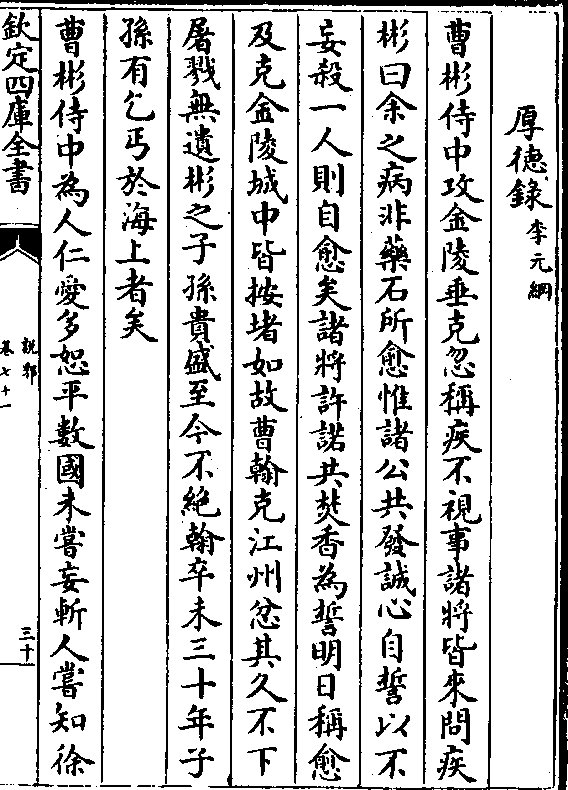 厚德錄 李元綱
曹彬侍中攻金陵垂克忽稱疾不視事諸將皆來問疾
彬曰余之病非藥石所愈惟諸公共發誠心自誓以不
妄殺一人則自愈矣諸將許諾共焚香為誓明日稱愈
及克金陵城中皆按堵如故曹翰克江州忿其久不下
屠戮無遺彬之子孫貴盛至今不絶翰卒未三十年子
孫有乞丐於海上者矣
曹彬侍中為人仁愛多恕平數國未嘗妄斬人嘗知徐
欽定四庫全書
説郛
卷七十一
三十